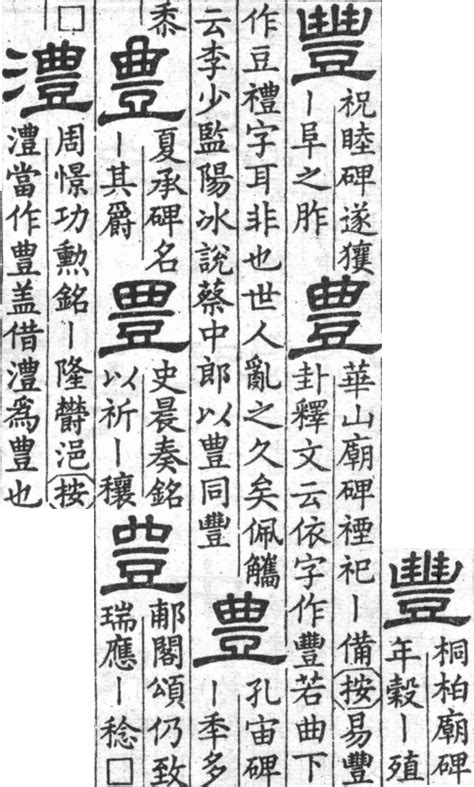 豐
桐柏廟碑
年穀ー殖
豐
祝睦碑遂獲
ー阜之胙
豊
華山廟碑禋祀ー備按易豐
卦釋文云依字作豐若曲下
作豆禮字耳非也世人亂之久矣佩觿
云李少監陽冰說蔡中郎以豊同豐
豊
孔宙碑
ー秊多
黍
豊
夏承碑名
ー其爵
豊
史晨奏銘
以祈ー穰
豊
郙閣頌仍致
瑞應ー稔□
□
澧
周憬功勳銘ー隆欝浥按
澧當作豊盖借澧爲豊也